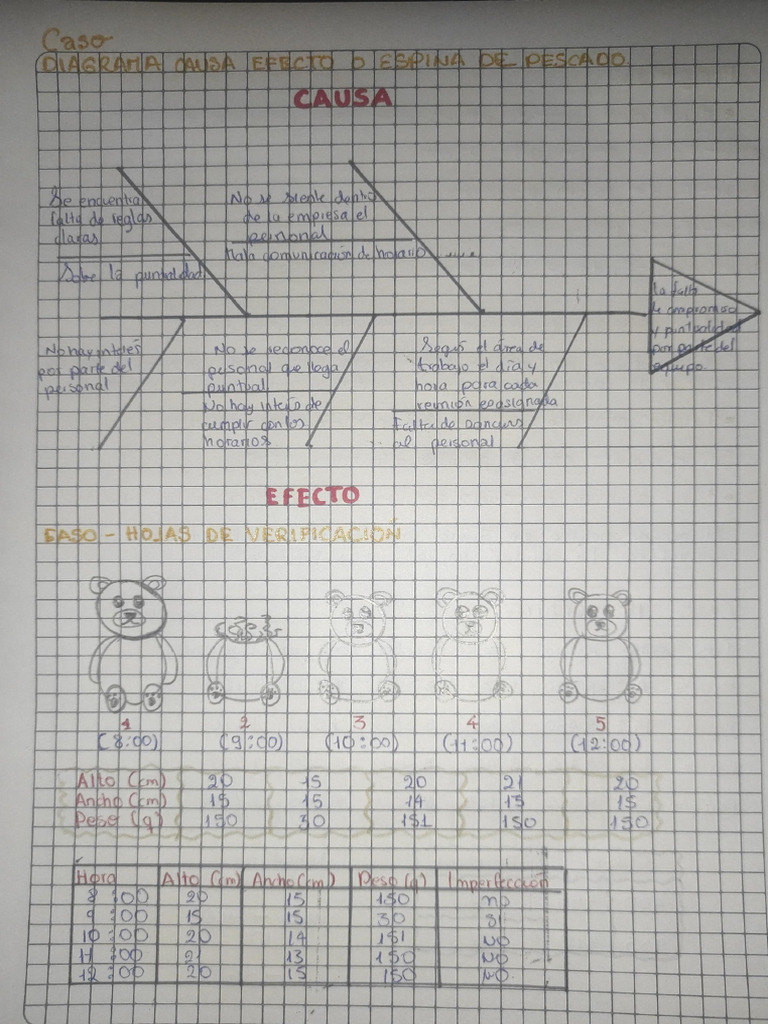 Caso
DIAGRAMA CAUSA EFECTO O ESPINA DE PESCADO
CAUSA
Se encuentra
falta de reglas
claras
Sobre la puntualidad
No se siente dentro
de la empresa el
personal
Mala comunicación de horario
la falta
de compromiso
y puntualidad
por parte del
equipo.
No hay interés
por parte del
personal
No se reconoce el
personal que llega
puntual
No hay interés de
cumplir con los
horarios
Según el área de
trabajo el día y
hora para cada
reunión
Falta de
al personal
EFECTO
CASO - HOJAS DE VERIFICACIÓN
1 2 3 4 5
(8:00) (9:00) (10:00) (11:00) (12:00)
Alto (cm) 20 15 20 21 20
Ancho (cm) 15 15 14 13 15
Peso (g) 150 30 151 150 150
Hora Alto (cm) Ancho (cm) Peso (g) Imperfección
8:00 20 15 150 no
9:00 15 15 30 si
10:00 20 14 151 NO
11:00 21 13 150 NO
12:00 20 15 150 NO.